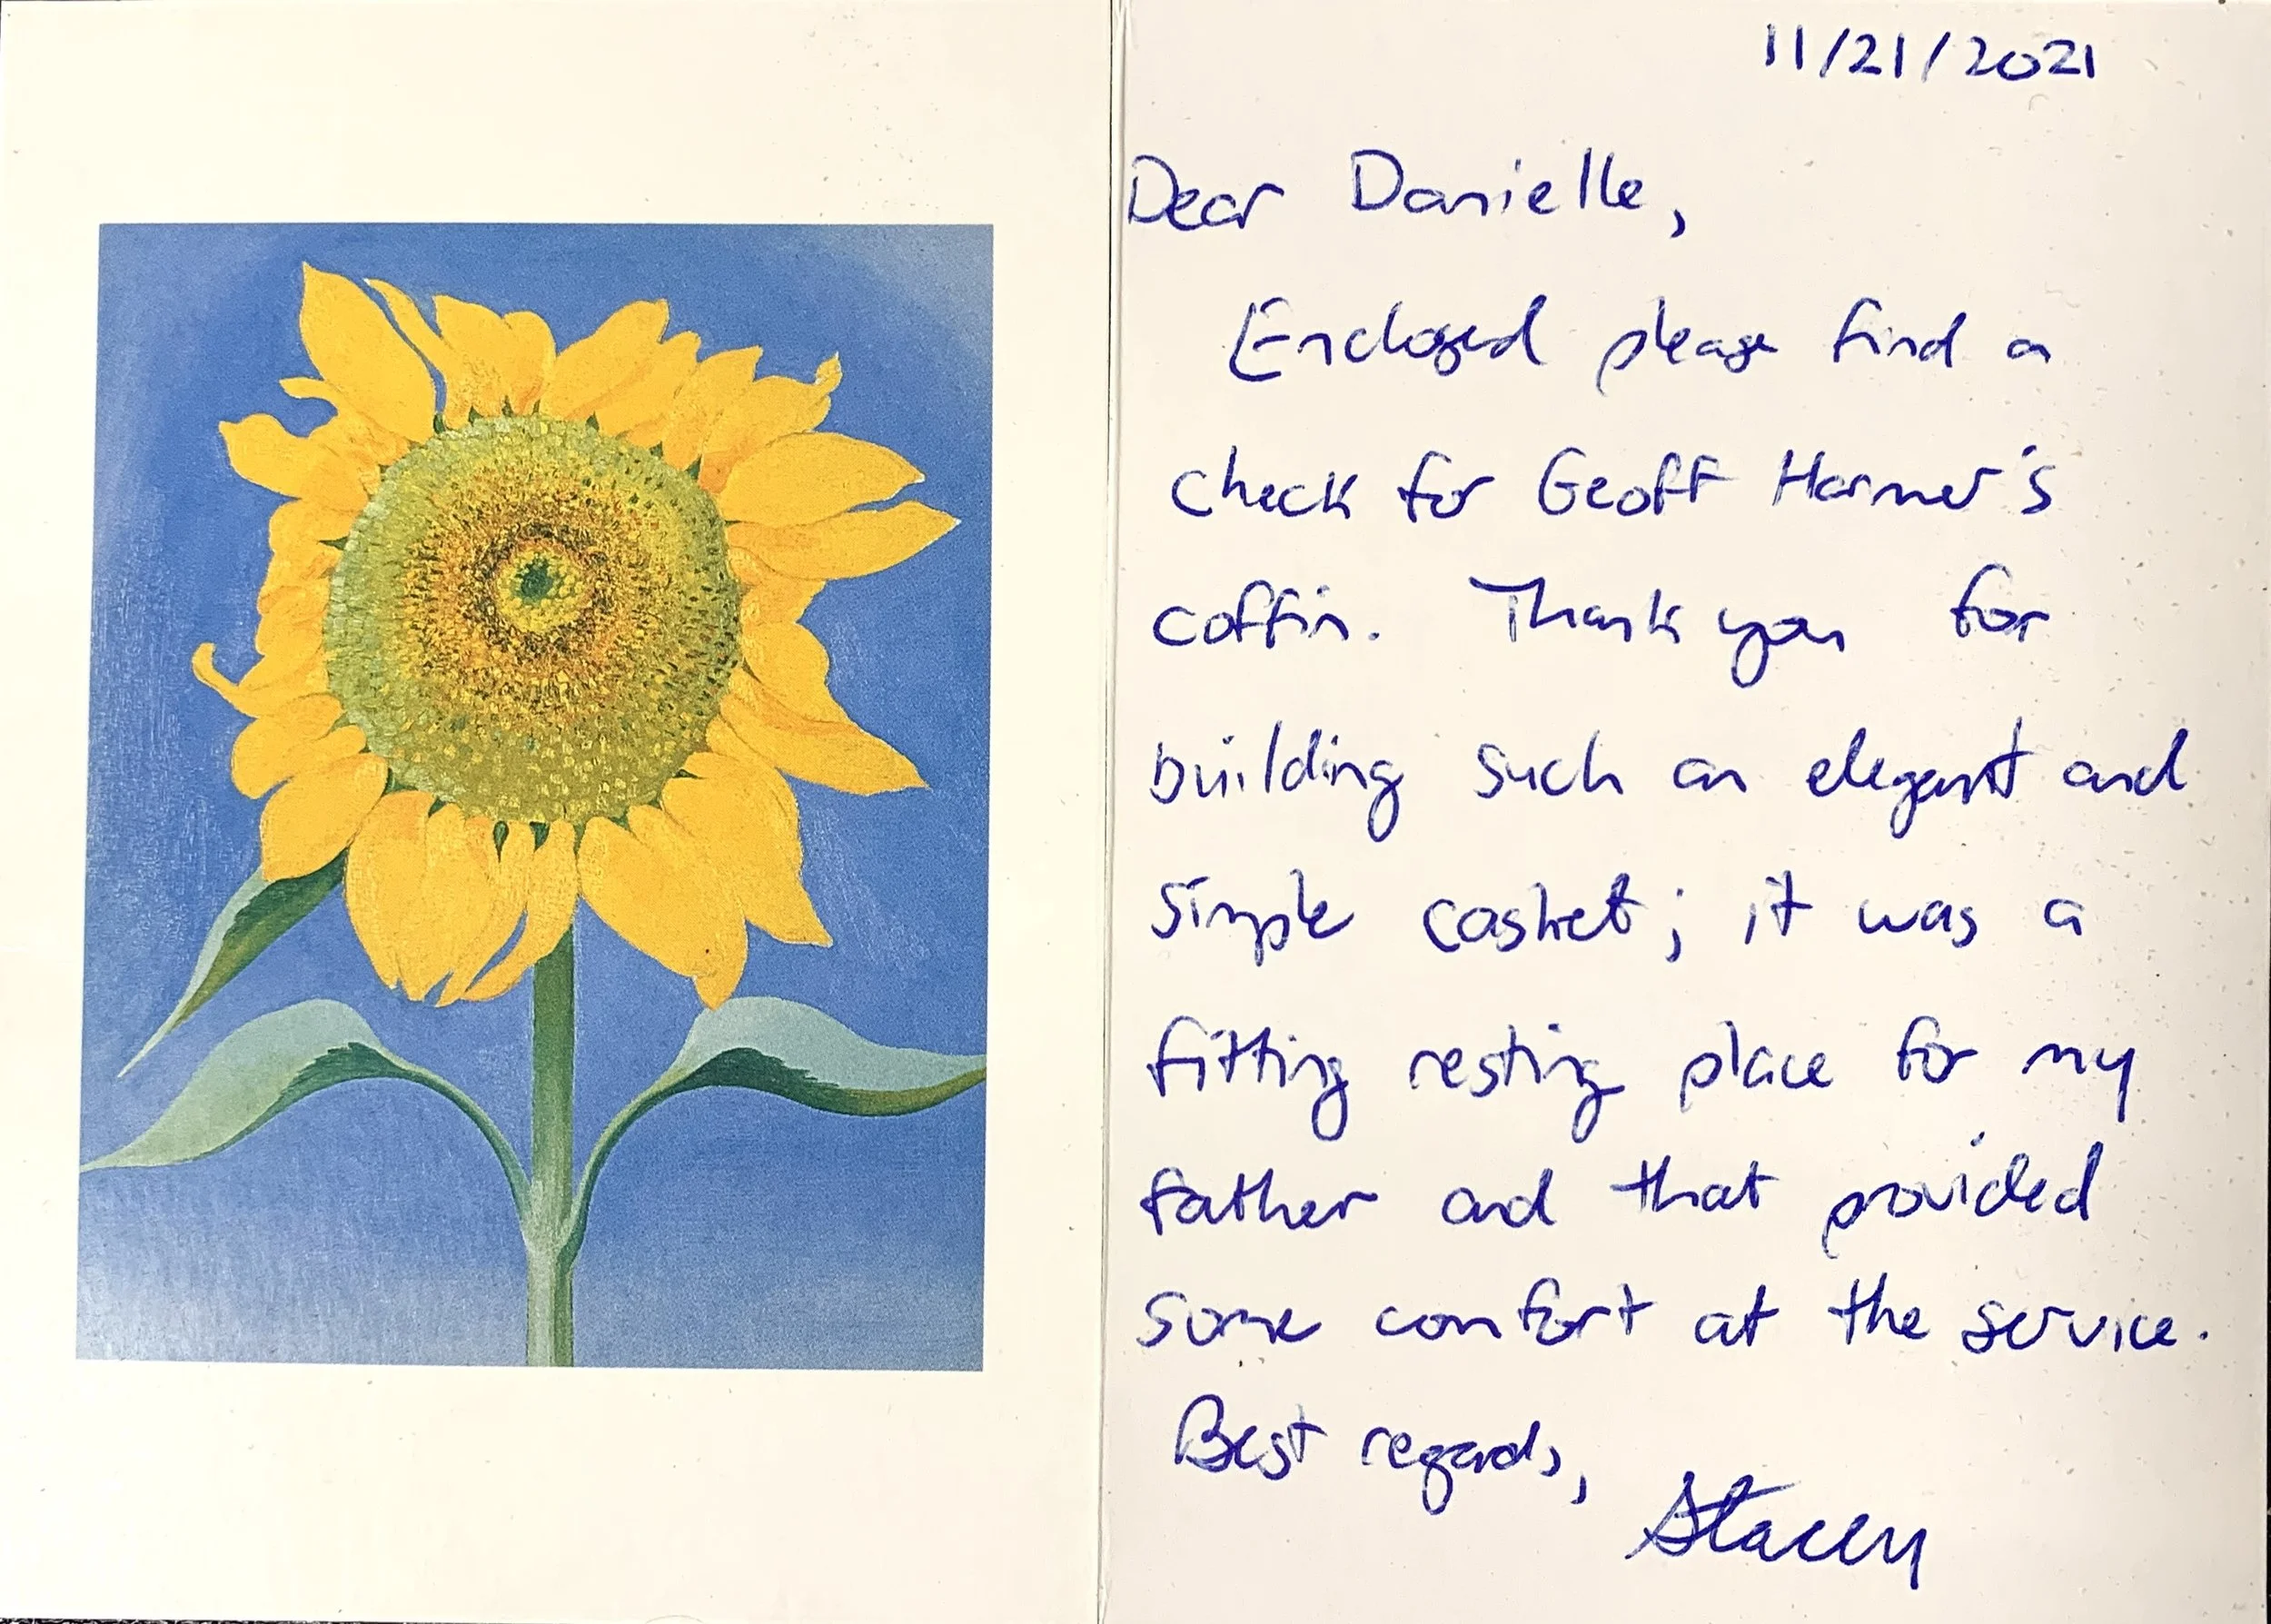 11/21/2021
Dear Danielle,
Enclosed please find a
check for Geoff Harmer's
coffin. Thank you for
building such an elegant and
simple casket; it was a
fitting resting place for my
father and that provided
some comfort at the service.
Best regards,
Stacey